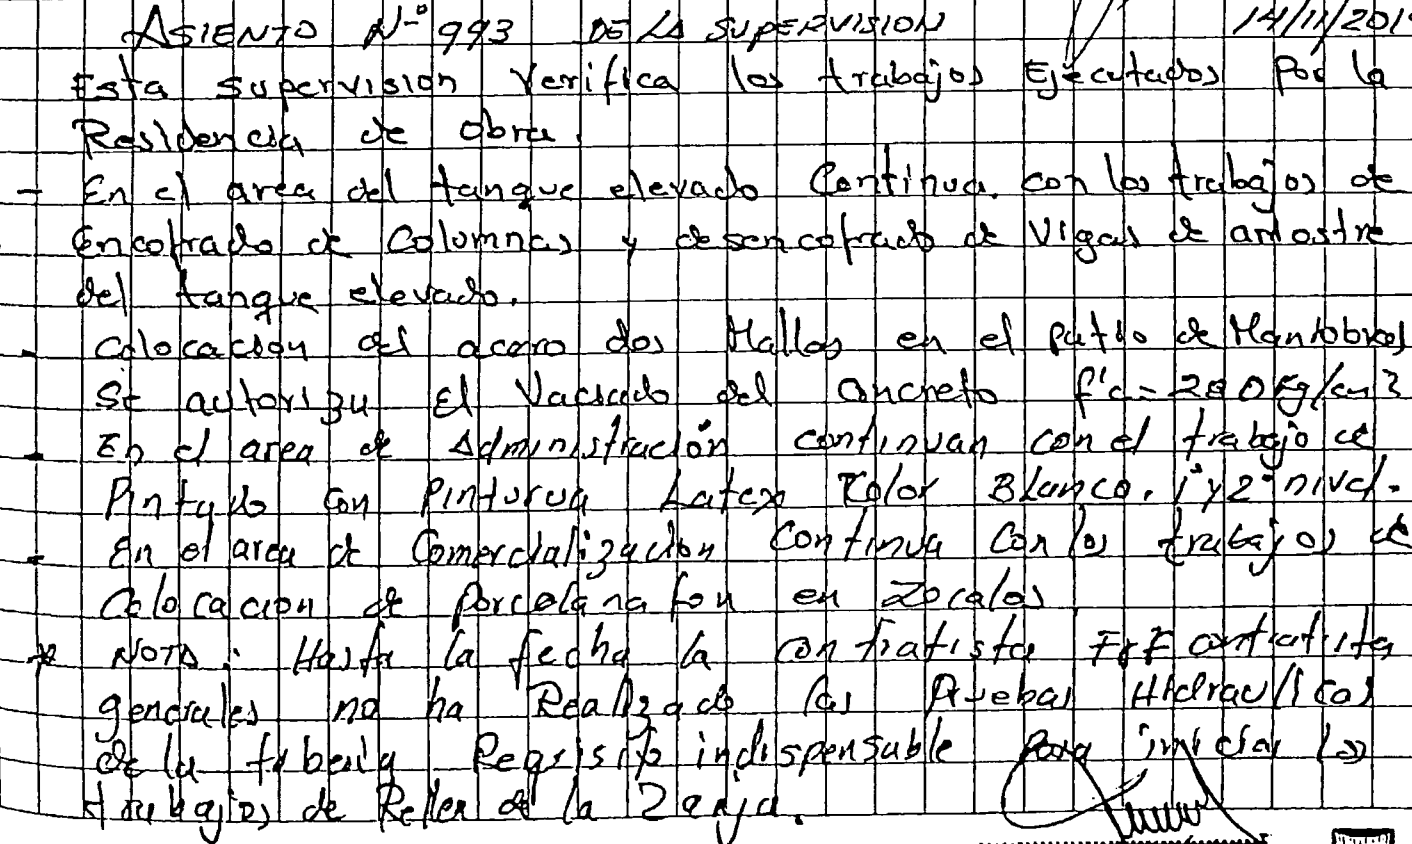 ASIENTO N° 993 DE LA SUPERVISION 14/11/201
Esta supervision Verifica los trabajos Ejecutados Por la
Residencia de obra.
- En el area del tanque elevado Continua con los trabajos de
Encofrado de Columnas y desencofrado de Vigas de amostre
del tanque elevado.
- Colocacion del acero dos Mallas en el patio de Maniobras
Se autoriza El Vaciado del concreto f'c=280Kg/cm2
- En el area de Administración continuan con el trabajo de
Pintado con Pinturua Latex Color Blanco. 1° y 2° nivel.
- En el area de Comercialización Continua Con los trabajos de
Colocacion de Porcelana fon en Zocalos
* NOTA: Hasta la fecha la contratista FyF contratistas
generales no ha Realizado las Pruebas Hidraulicas
de la tuberia Requisito indispensable para iniciar los
trabajos de Rellen de la Zanja.